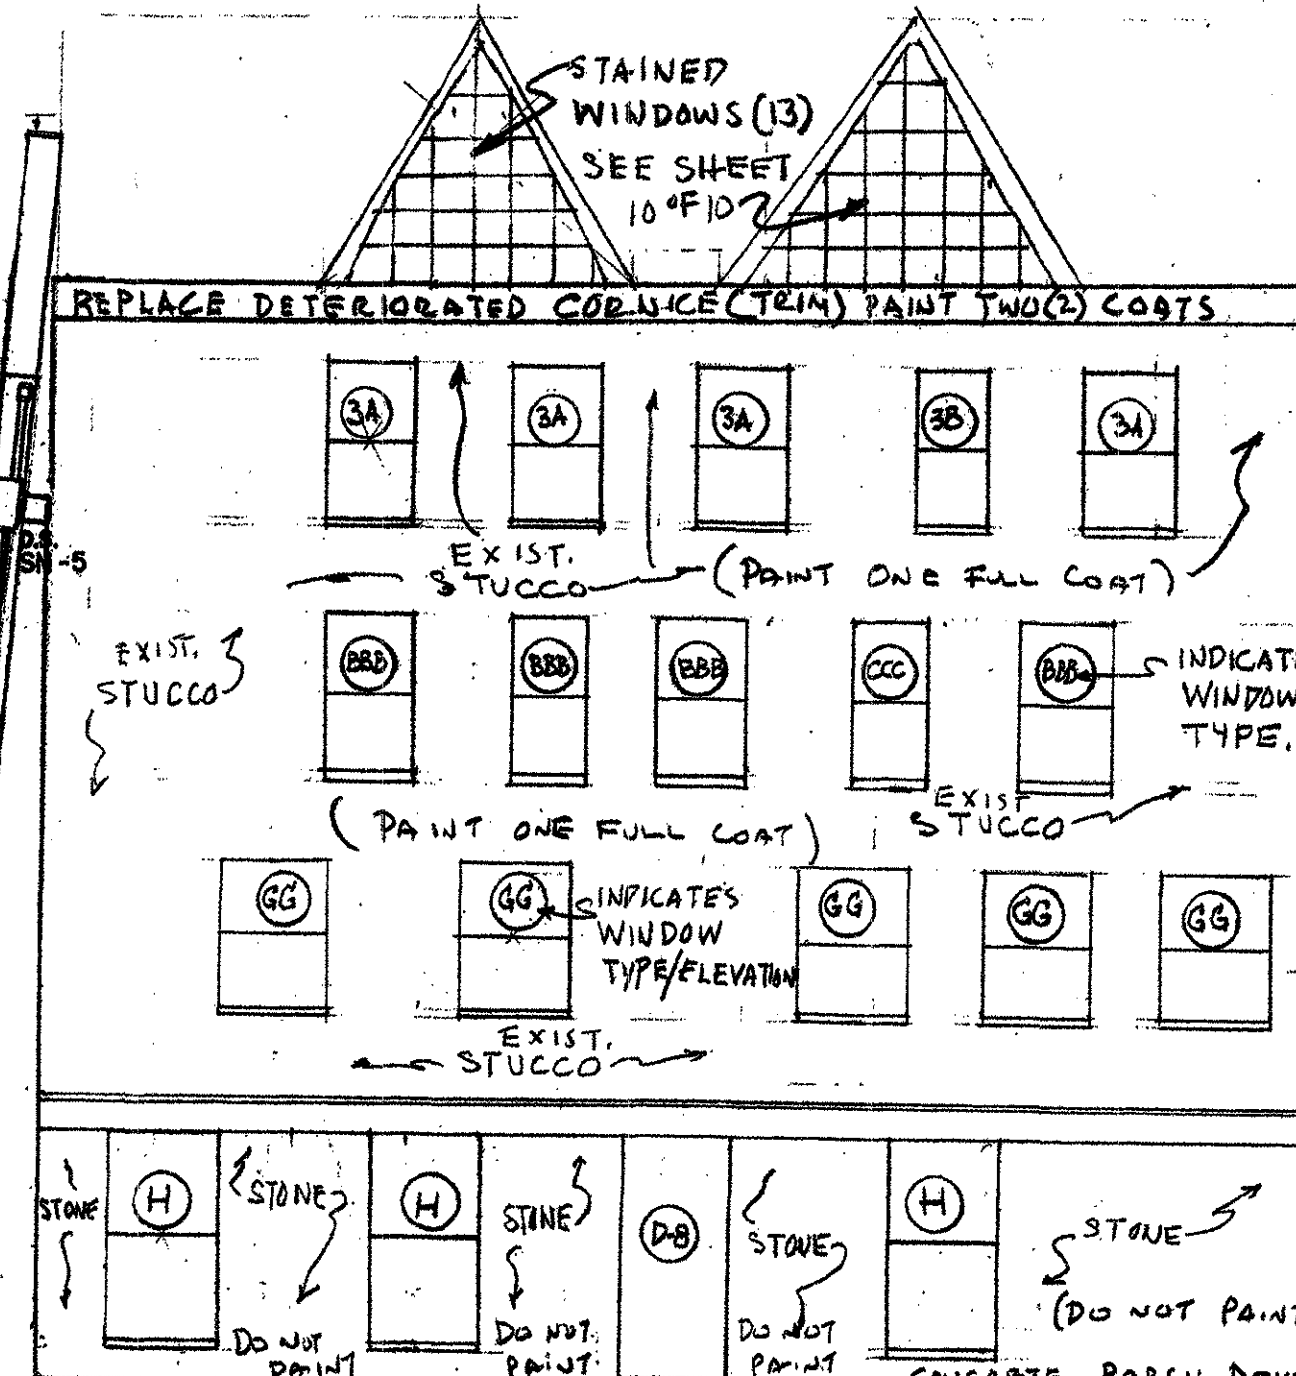 STAINED
WINDOWS (13)
SEE SHEET
10 OF 10
REPLACE DETERIORATED CORNICE (TRIM) PAINT TWO (2) COATS
3A
3A
3A
3B
3A
D.S.
SN-5
EXIST.
STUCCO
(PAINT ONE FULL COAT)
EXIST.
STUCCO
BBB
BBB
BBB
CCC
BBB
INDICATE
WINDOW
TYPE.
(PAINT ONE FULL COAT)
EXIST
STUCCO
GG
GG
INDICATE'S
WINDOW
TYPE/ELEVATION
GG
GG
GG
EXIST.
STUCCO
STONE
H
STONE
DO NOT
PAINT
H
STONE
DO NOT
PAINT
D-8
STONE
DO NOT
PAINT
H
STONE
(DO NOT PAINT
PORCH